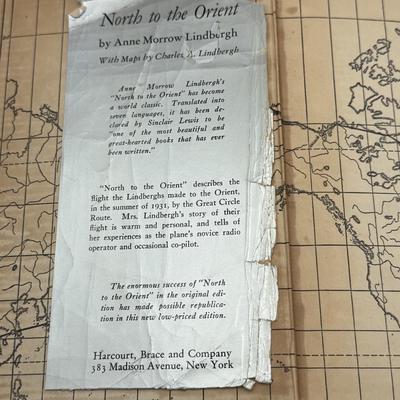 North to the Orient
by Anne Morrow Lindbergh
With Maps by Charles A. Lindbergh
Anne Morrow Lindbergh's
"North to the Orient" has become
a world classic. Translated into
seven languages, it has been de-
clared by Sinclair Lewis to be
"one of the most beautiful and
great-hearted books that has ever
been written."
"North to the Orient" describes the
flight the Lindberghs made to the Orient,
in the summer of 1931, by the Great Circle
Route. Mrs. Lindbergh's story of their
flight is warm and personal, and tells of
her experiences as the plane's novice radio
operator and occasional co-pilot.
The enormous success of "North
to the Orient" in the original edi-
tion has made possible republica-
tion in this new low-priced edition.
Harcourt, Brace and Company
383 Madison Avenue, New York